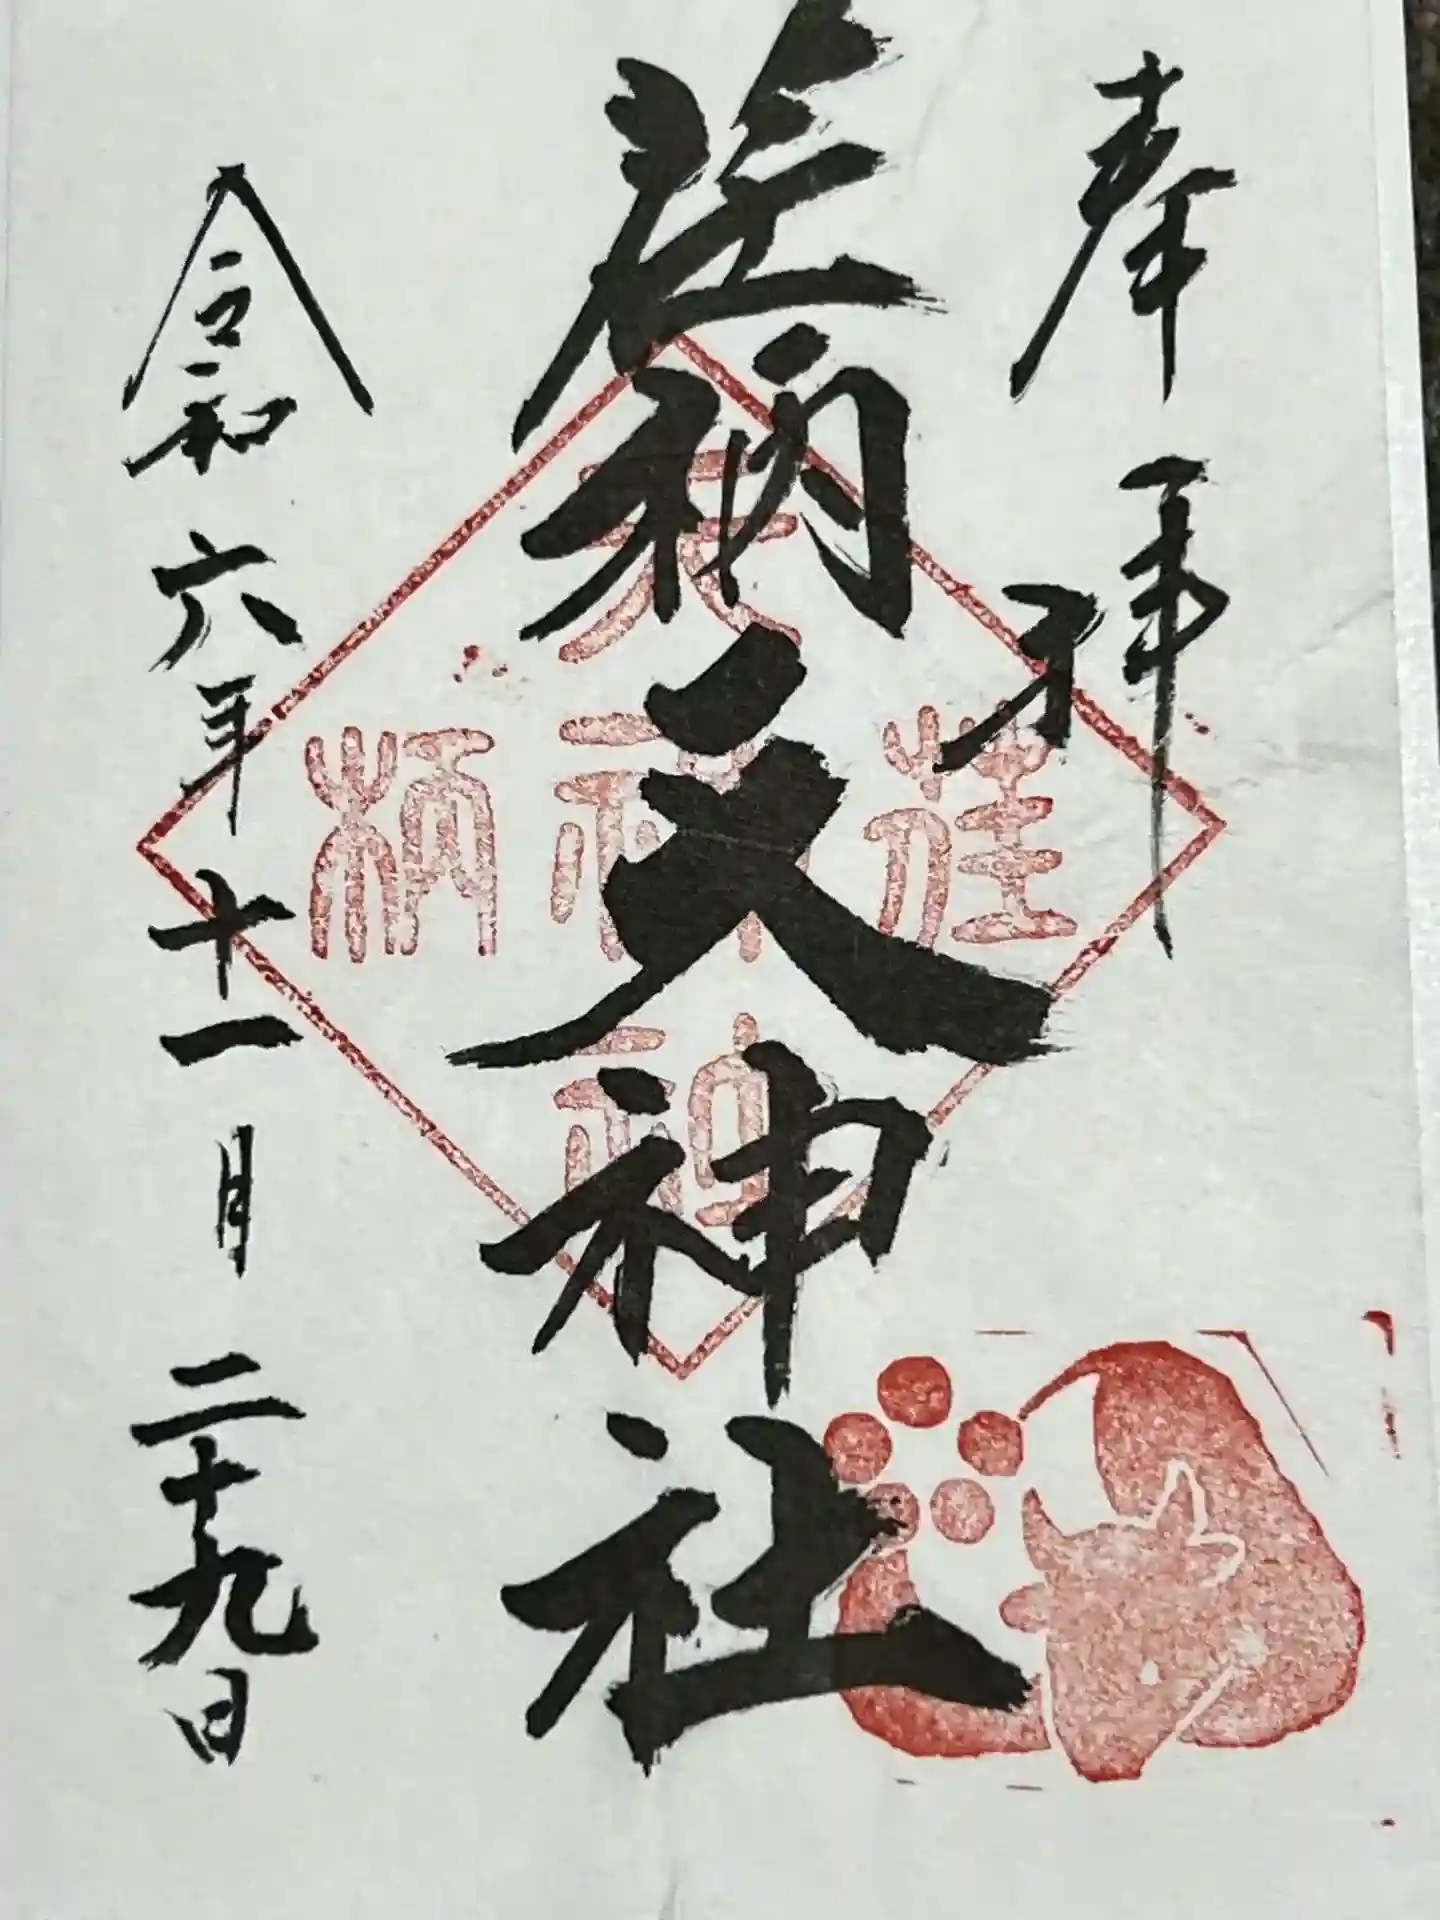 奉拝
荏柄天神社
荏柄天神社
令和六年十一月二十九日